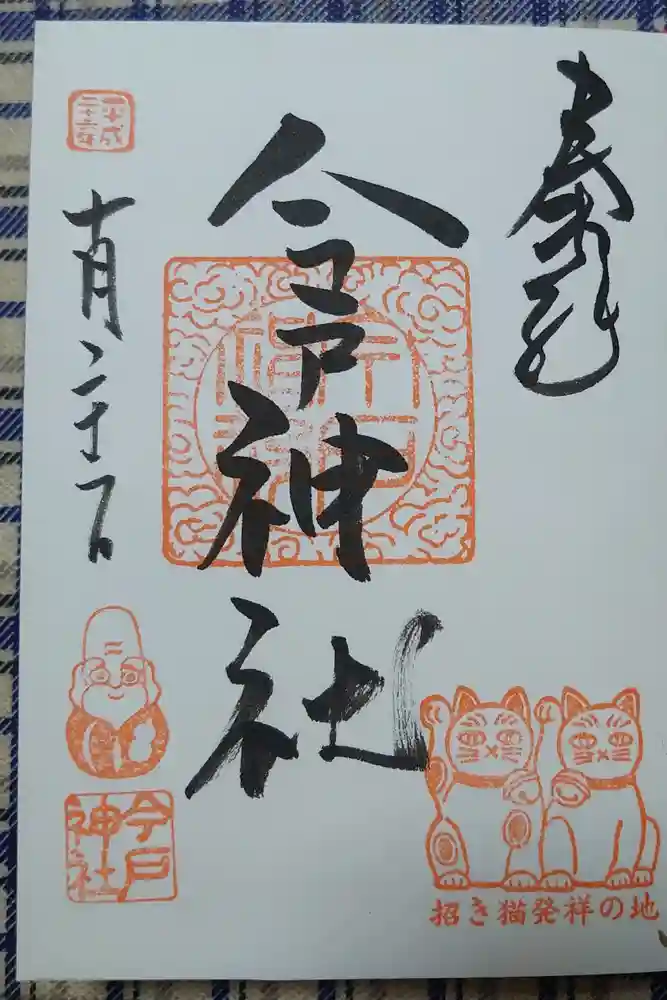 奉拝
今戸神社
平成
十月二十一日
今戸
神社
招き猫発祥の地